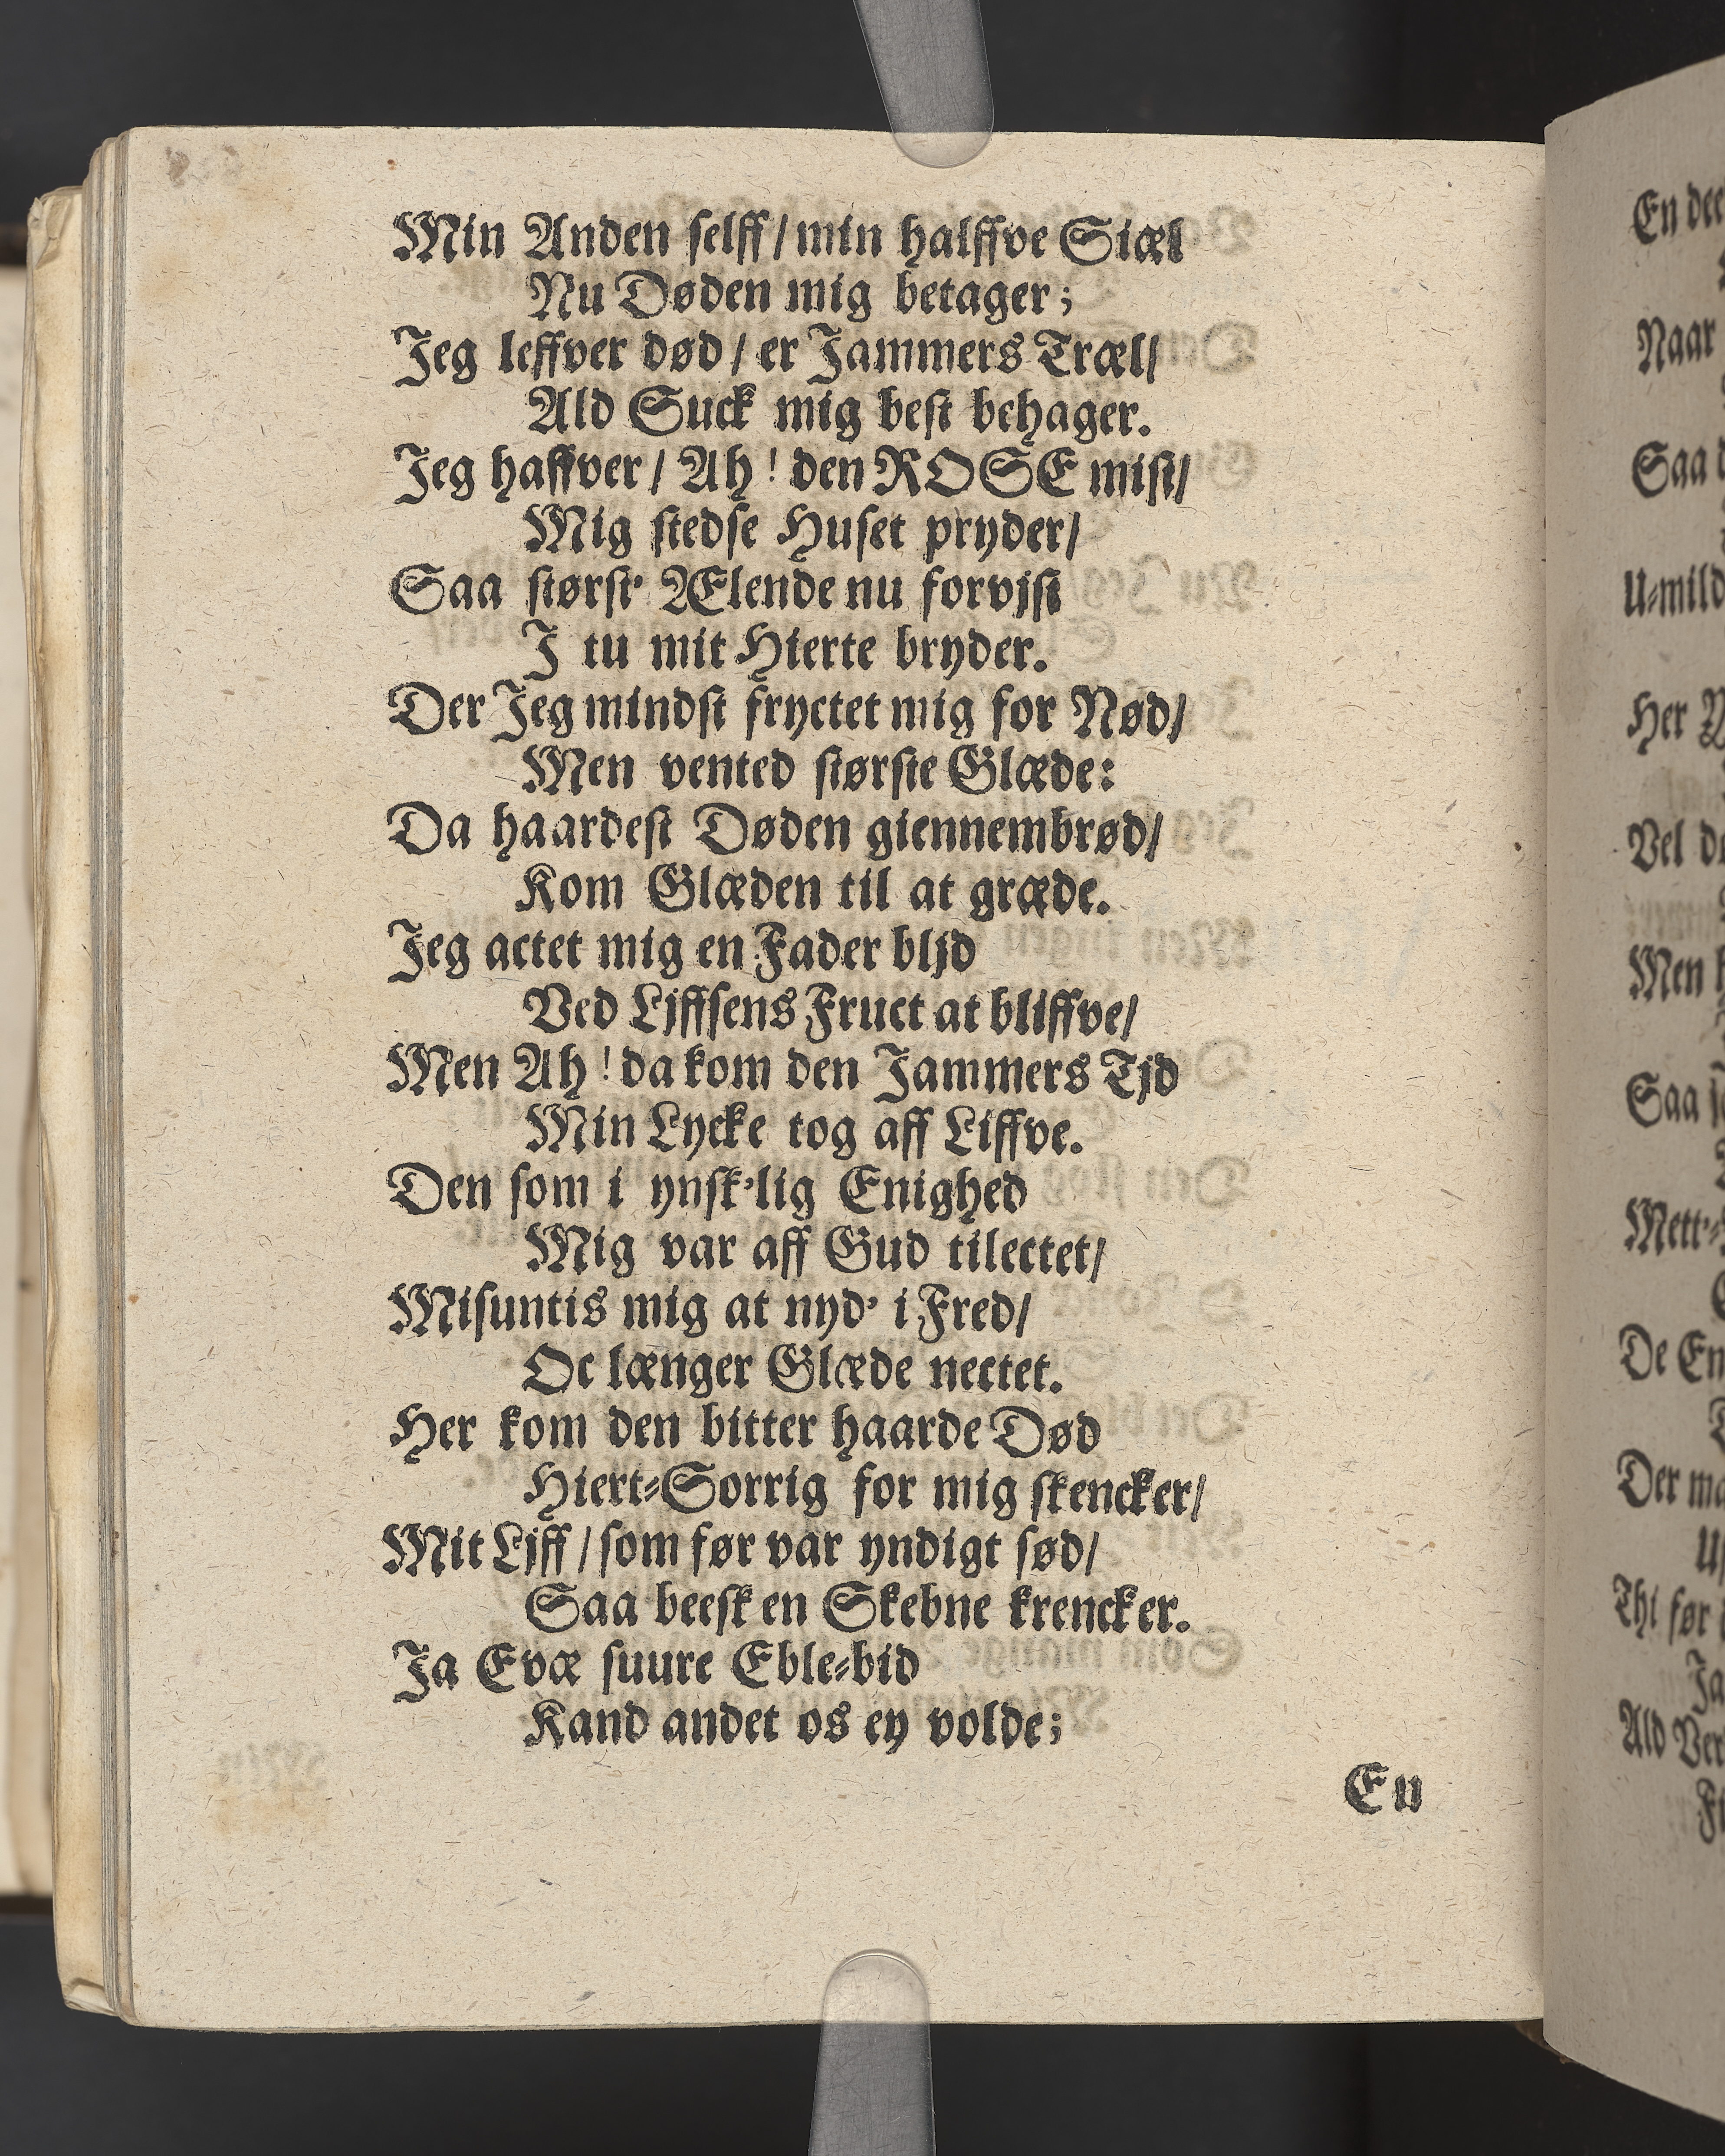 Min Anden selff / min halffve Siæl
Nu Døden mig betager;
Jeg leffver død / er Jammers Træl /
Ald Suck mig best behager.
Jeg haffver / Ah! den ROSE mist /
Mig stedse Huset pryder /
Saa størst' Ælende nu forvjst
J tu mit Hierte bryder.
Der Jeg mindst fryctet mig for Nød /
Men vented største Glæde:
Da haardest Døden giennembrød /
Kom Glæden til at græde.
Jeg actet mig en Fader bljd
Ved Ljffsens Fruct at bliffve /
Men Ah! da kom den Jammers Tjd
Min Lycke tog aff Liffve.
Den som i ynsk'lig Enighed
Mig var aff Gud tilectet /
Misuntis mig at nyd' i Fred /
Oc længer Glæde nectet.
Her kom den bitter haarde Død
Hiert-Sorrig for mig skencker /
Mit Ljff / som før var yndigt sød /
Saa beesk en Skebne krencker.
Ja Evæ suure Eble-bid
Kand andet os ey volde;
En
En dee
Naar
Saa
U-mild
Her
Vel
Men
Saa
Mett'-
De En
Der
Thi før
Ja
Ald Ver